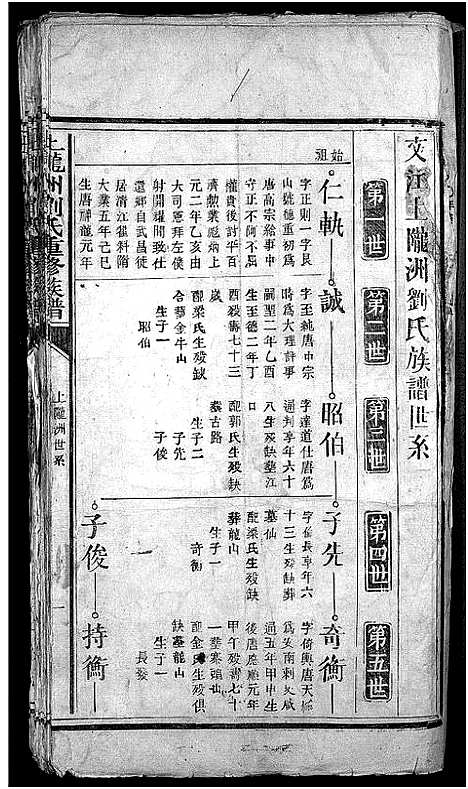 文江上隴洲劉氏族譜世系
第一世
第二世
第三世
第四世
第五世
始祖
仁軌
字正則一字良
山號德重初爲
唐高宗給事中
守正不阿不屈
權貴後討平百
濟勳業彪炳上
元二年乙亥由
大司憲拜左僕
射開耀間致仕
還鄉自武昌徙
居清江
大業五年己巳
生唐神龍元年
誠
字至純唐中宗
時爲大理評事
嗣聖二年乙酉
生至德二年丁
酉歿壽七十三
歲
配梁氏生歿缺
合葬金牛山
生子一
昭伯
昭伯
字達道仕唐爲
通判享年六十
八生歿缺葬江
口
配郭氏生歿缺
葬古路
生子二
子先
子俊
子先
字在長享年六
十三生歿缺葬
墓仙
配梁氏生歿缺
葬龍山
生子一
奇衡
奇衡
字倚輿唐天
爲安南刺史咸
通五年甲申生
後唐應順元年
甲午歿壽七十
一葬寒
配金氏生歿俱
缺葬龍山
生子一
長發
子俊
持衡
上隴洲劉氏重修族譜
上隴洲世系
一